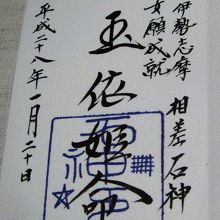 伊勢志摩
相差石神
女願成就
玉依姫命
平成二十八年一月二十日